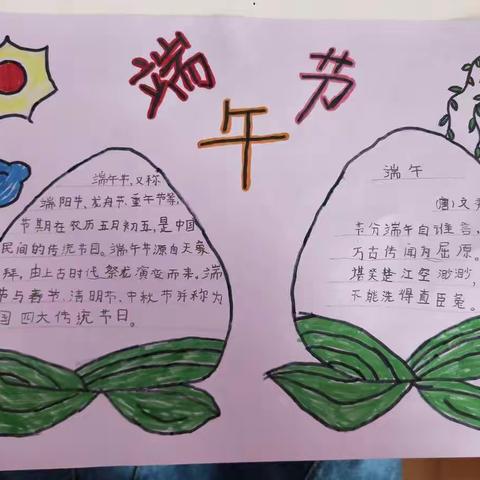 端午节
端午节,又称
端阳节、龙舟节、重午节等,
节期在农历五月初五,是中国
民间的传统节日。端午节源自天象
拜,由上古时代祭龙演变而来,端
节与春节、清明节、中秋节并称为
国四大传统节日。
端午
(唐)文秀
节分端午自谁言,
万古传闻为屈原。
堪笑楚江空渺渺,
不能洗得直臣冤。